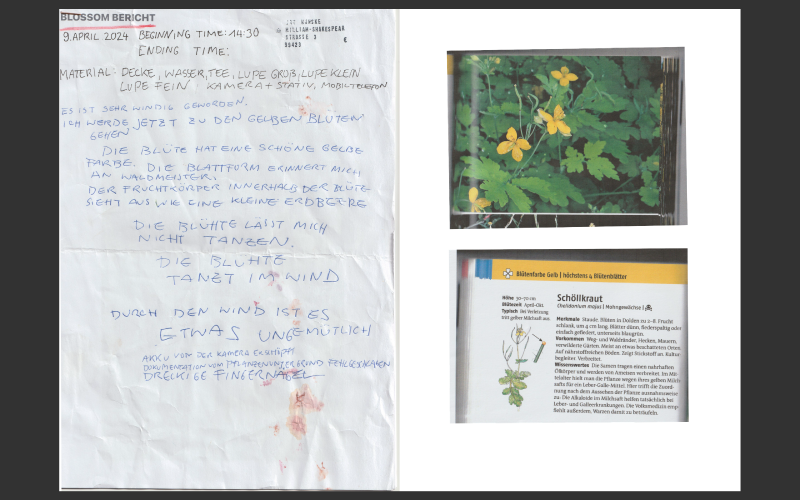 BLOSSOM BERICHT
9. APRIL 2024 BEGINNING TIME: 14:30
ENDING TIME:
WILLIAM-SHAKESPEAR
STRASSE 3
MATERIAL: DECKE, WASSER, TEE, LUPE GROß, LUPE KLEIN
LUPE FEIN KAMERA + STATIV, MOBILTELEFON
ES IST SEHR WINDIG GEWORDEN.
ICH WERDE JETZT ZU DEN GELBEN BLÜTEN
GEHEN
DIE BLÜTE HAT EINE SCHÖNE GELBE
FARBE. DIE BLATTFORM ERINNERT MICH
AN WALDMEISTER.
DER FRUCHTKÖRPER INNERHALB DER BLÜTE
SIEHT AUS WIE EINE KLEINE ERDBEERE
DIE BLÜHTE LÄSST MICH
NICHT TANZEN.
DIE BLÜHTE
TANZT IM WIND
DURCH DEN WIND IST ES
ETWAS UNGEMÜTLICH
AKKU VON DER KAMERA ERSCHÖPFT
DOKUMENTATION VOM PFLANZENUNTERGRUND FEHLGESCHLAGEN
DRECKIGE FINGERNÄGEL
Blütenfarbe Gelb | höchstens 4 Blütenblätter
Höhe 30–70 cm
Blütezeit April–Okt.
Typisch Bei Verletzung
tritt gelber Milchsaft aus.
Schöllkraut
Chelidonium majus | Mohngewächse |
Merkmale Staude. Blüten in Dolden zu 2–8. Frucht
schlank, um 4 cm lang. Blätter dünn, fiederspaltig oder
einfach gefiedert, unterseits blaugrün.
Vorkommen Weg- und Waldränder, Hecken, Mauern,
verwilderte Gärten. Meist an etwas beschatteten Orten.
Auf nährstoffreichen Böden. Zeigt Stickstoff an. Kultur-
begleiter. Verbreitet.
Wissenswertes Die Samen tragen einen nahrhaften
Ölkörper und werden von Ameisen verbreitet. Im Mit-
telalter hielt man die Pflanze wegen ihres gelben Milch-
safts für ein Leber-Galle-Mittel. Hier trifft die Zuord-
nung nach dem Aussehen der Pflanze ausnahmsweise
zu: Die Alkaloide im Milchsaft helfen tatsächlich bei
Leber- und Gallenerkrankungen. Die Volksmedizin emp-
fiehlt außerdem, Warzen damit zu betupfen.